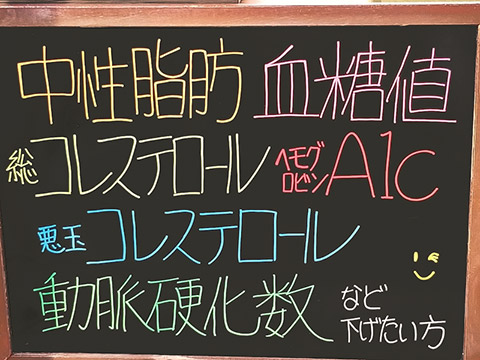 中性脂肪 血糖値
総コレステロール ヘモグロビンA1c
悪玉コレステロール
動脈硬化数 など下げたい方